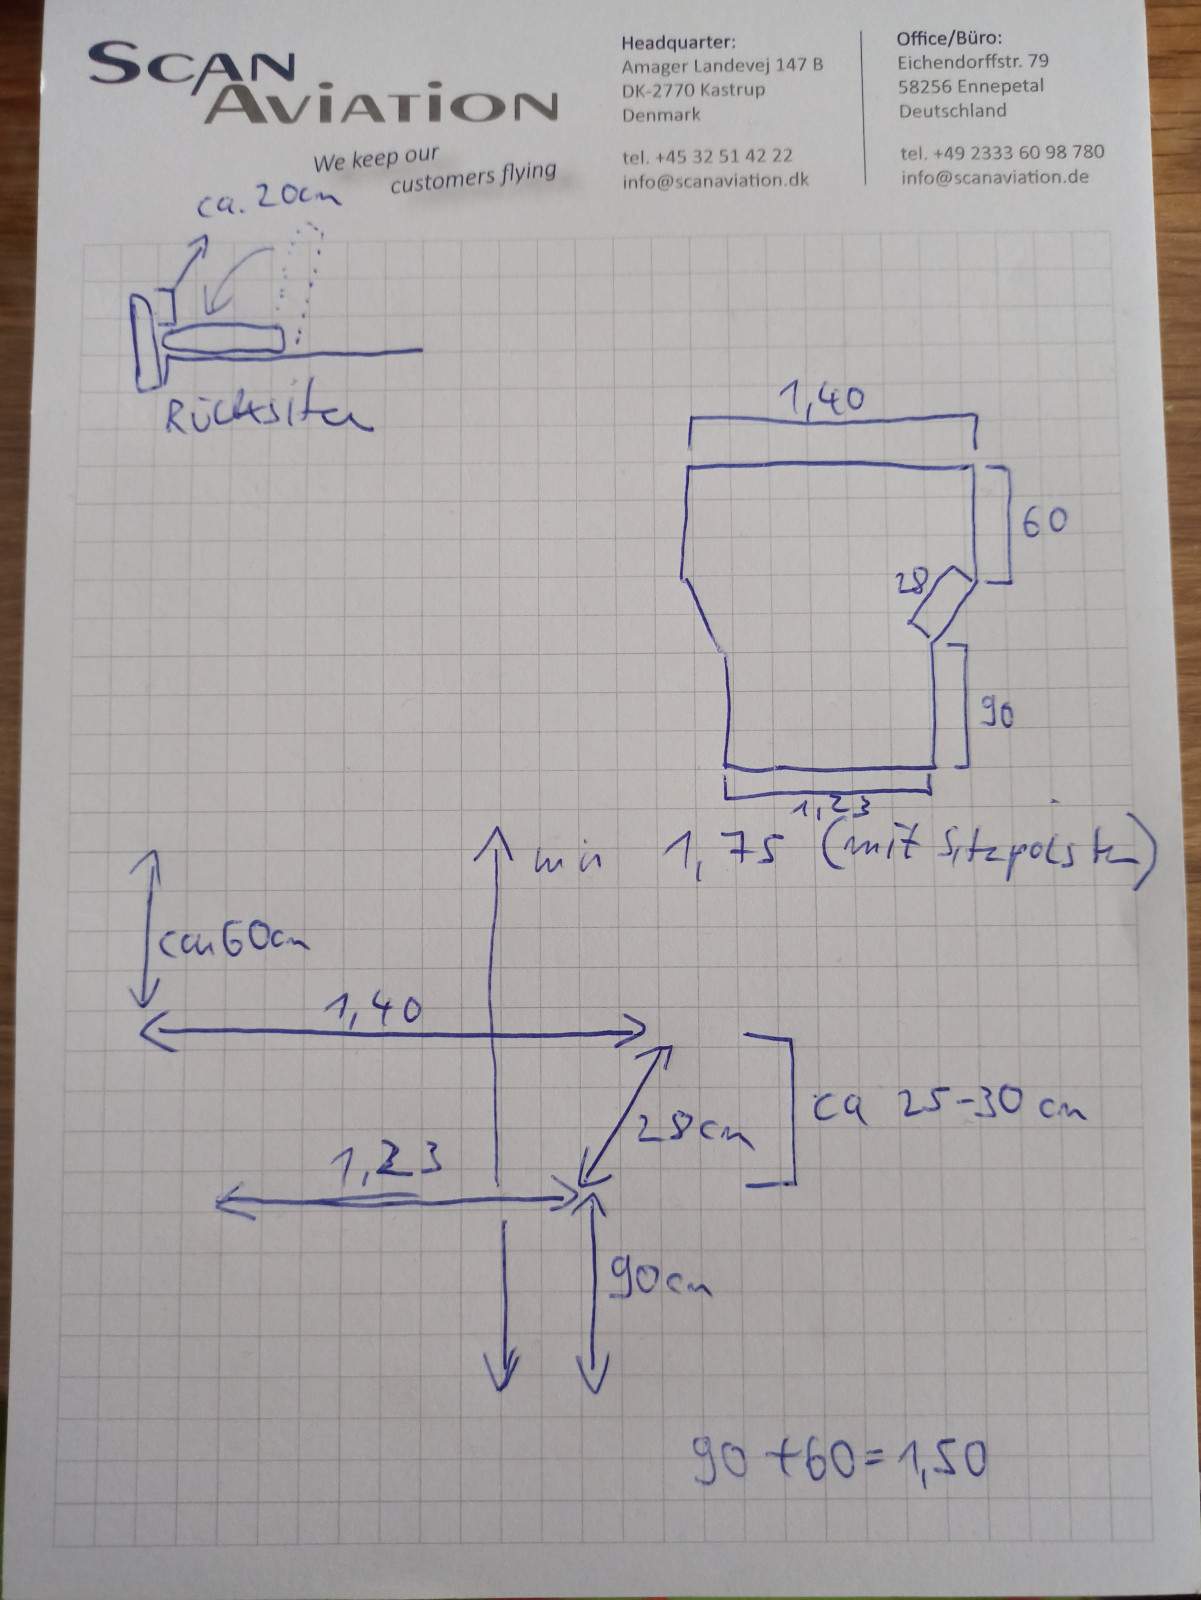 SCAN
AVIATION
We keep our
customers flying
Headquarter:
Amager Landevej 147 B
DK-2770 Kastrup
Denmark
tel. +45 32 51 42 22
info@scanaviation.dk
Office/Büro:
Eichendorffstr. 79
58256 Ennepetal
Deutschland
tel. +49 2333 60 98 780
info@scanaviation.de
ca. 20cm
Rücksitze
1,40
60
28
90
1,23
min 1,75 (mit Sitzpolster)
ca. 60cm
1,40
28cm
ca 25-30 cm
1,23
90cm
90 + 60 = 1,50